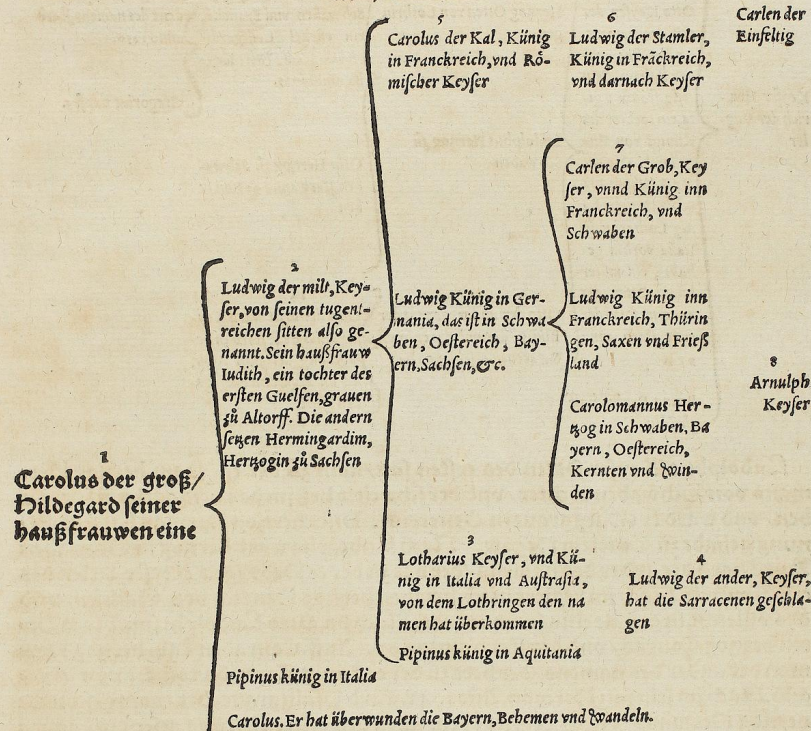 1
Carolus der groß/
Hildegard seiner
haußfrauwen eine
2
Ludwig der milt, Key-
ser, von seinen tugent-
reichen sitten also ge-
nannt. Sein haußfrauw
Iudith, ein tochter des
ersten Guelfen, grauen
zů Altorff. Die andern
setzen Hermingardim,
Hertzogin zů Sachsen
Pipinus künig in Italia
Carolus. Er hat überwunden die Bayern, Behemen vnd Wandeln.
5
Carolus der Kal, Künig
in Franckreich, vnd Rö-
mischer Keyser
Ludwig Künig in Ger-
mania, das ist in Schwa-
ben, Oestereich, Bay-
ern, Sachsen, &c.
3
Lotharius Keyser, vnd Kü-
nig in Italia vnd Austrasia,
von dem Lothringen den na
men hat überkommen
Pipinus künig in Aquitania
6
Ludwig der Stamler,
Künig in Frãckreich,
vnd darnach Keyser
7
Carlen der Grob, Key
ser, vnnd Künig inn
Franckreich, vnd
Schwaben
Ludwig Künig inn
Franckreich, Thürin
gen, Saxen vnd Frieß
land
Carolomannus Her-
tzog in Schwaben, Ba
yern, Oestereich,
Kernten vnd Win-
den
4
Ludwig der ander, Keyser,
hat die Sarracenen geschla-
gen
Carlen der
Einfeltig
8
Arnulph
Keyser